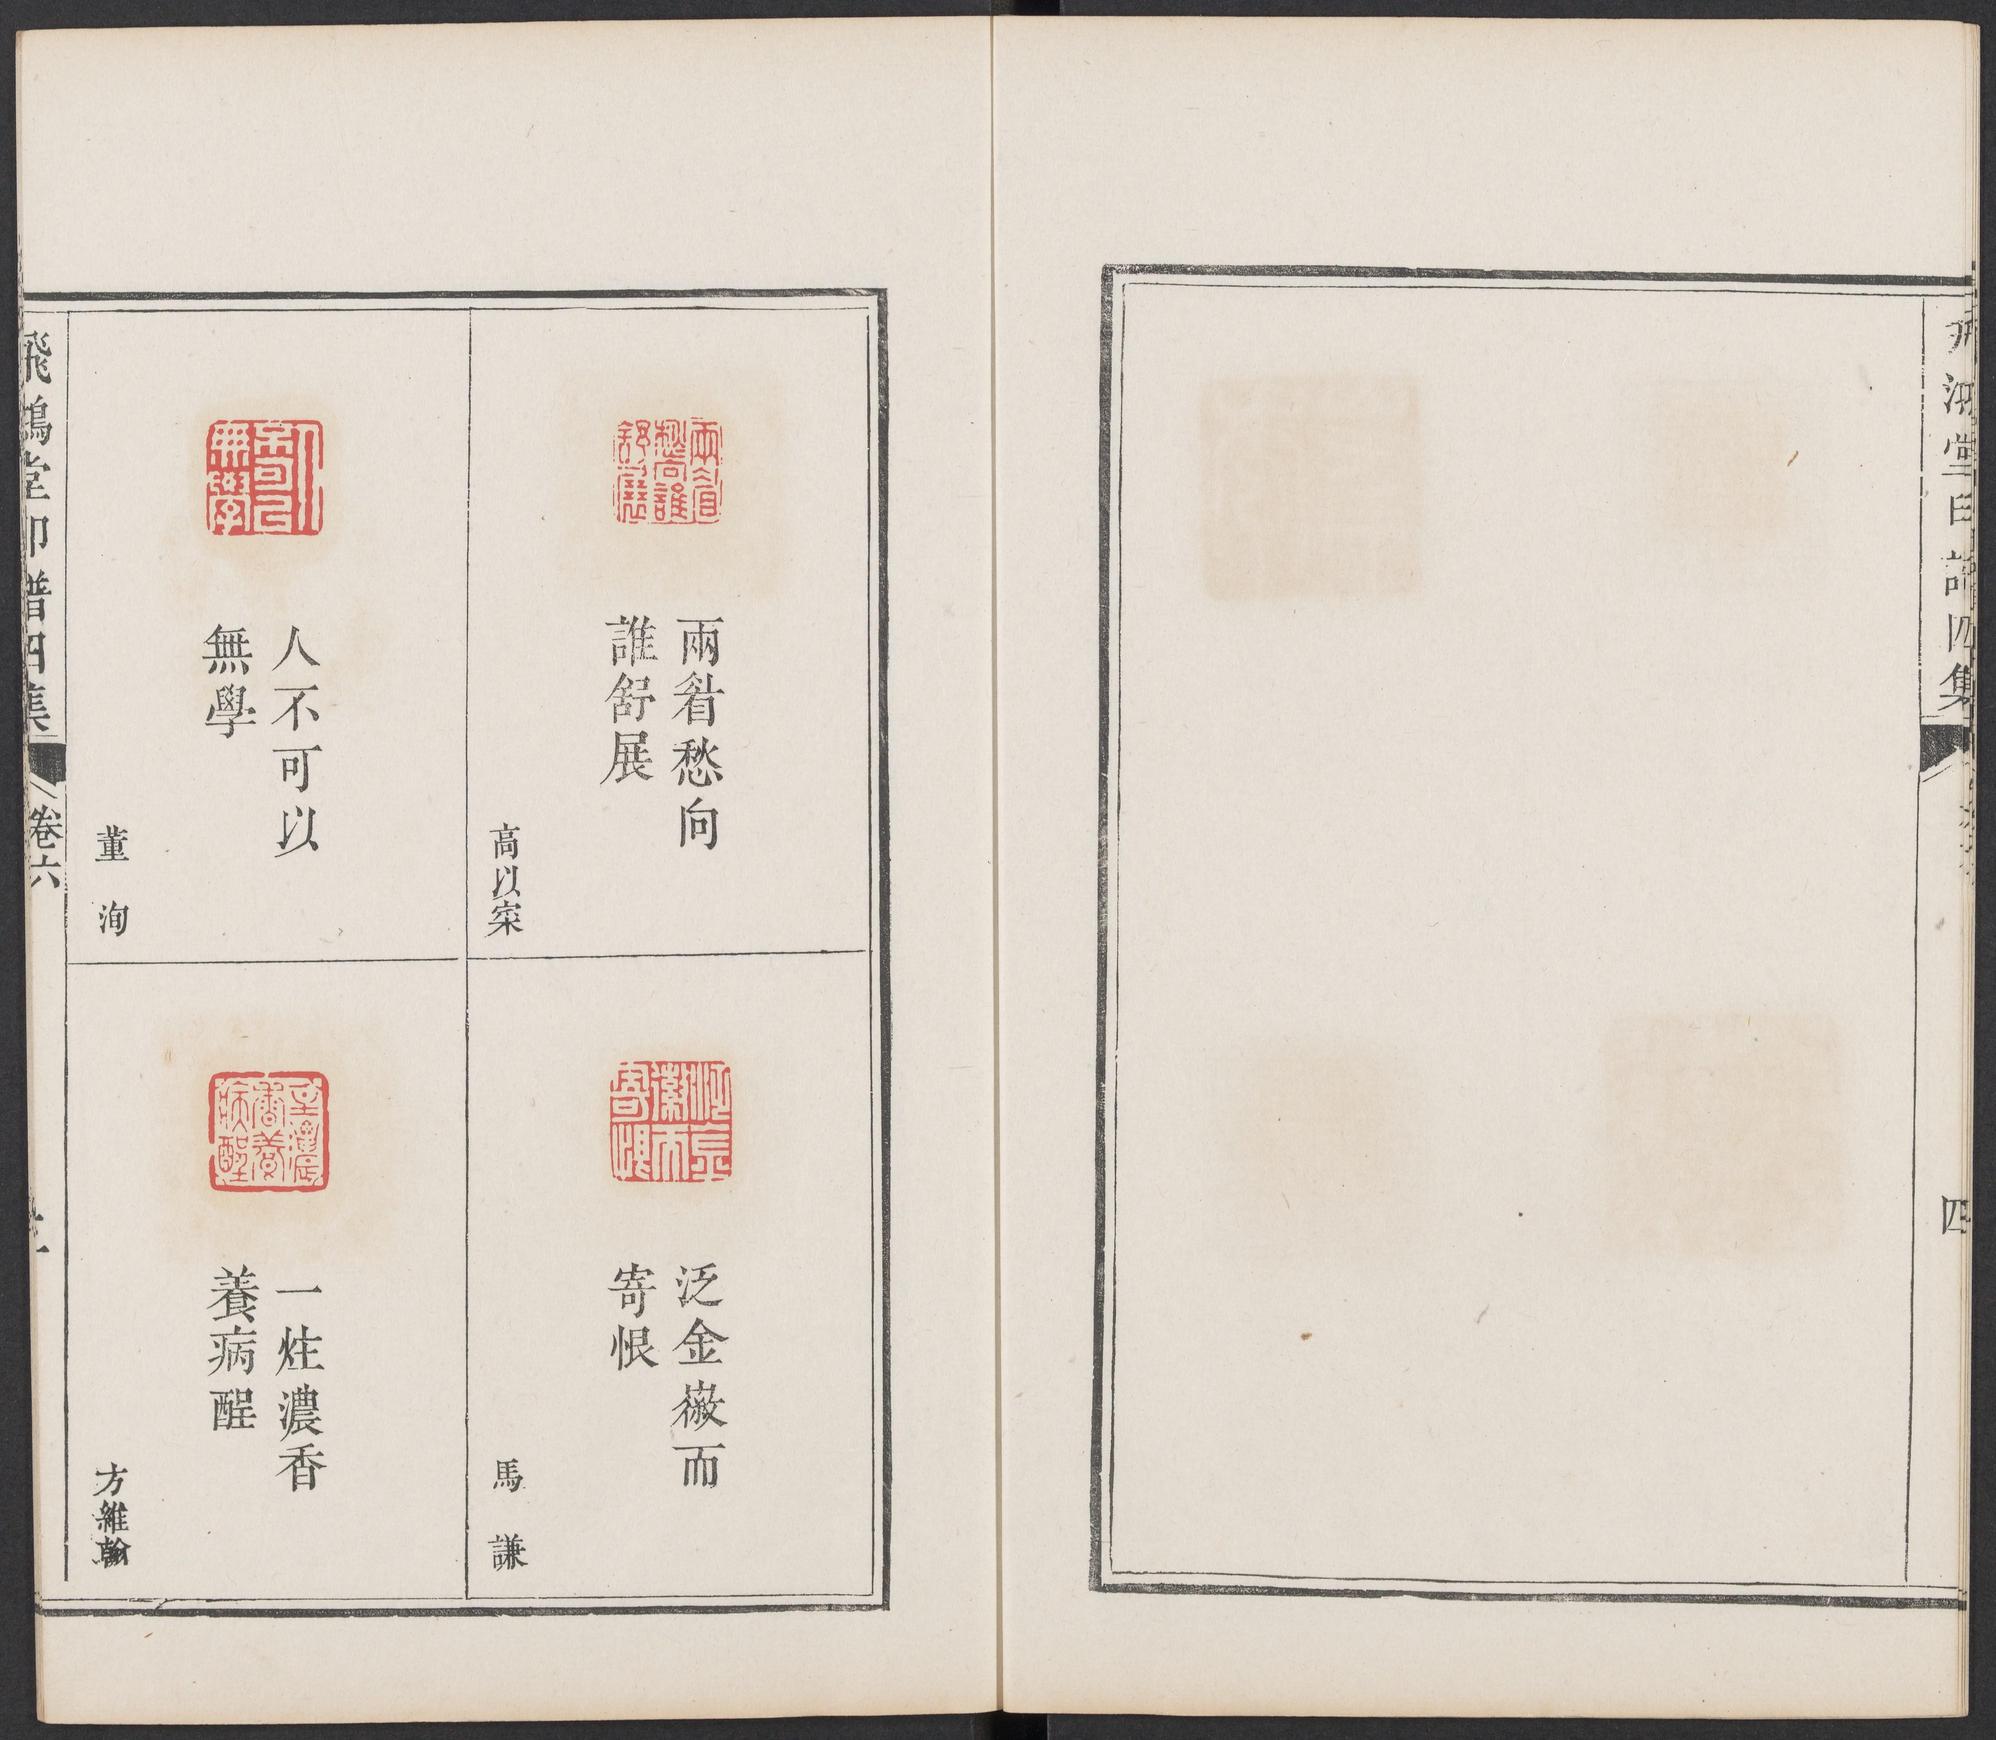 飛鴻堂印譜四集
四
兩眉愁向
誰舒展
高以寀
泛金徽而
寄恨
馬謙
人不可以
無學
董洵
一炷濃香
養病酲
方維翰
飛鴻堂印譜四集
卷六